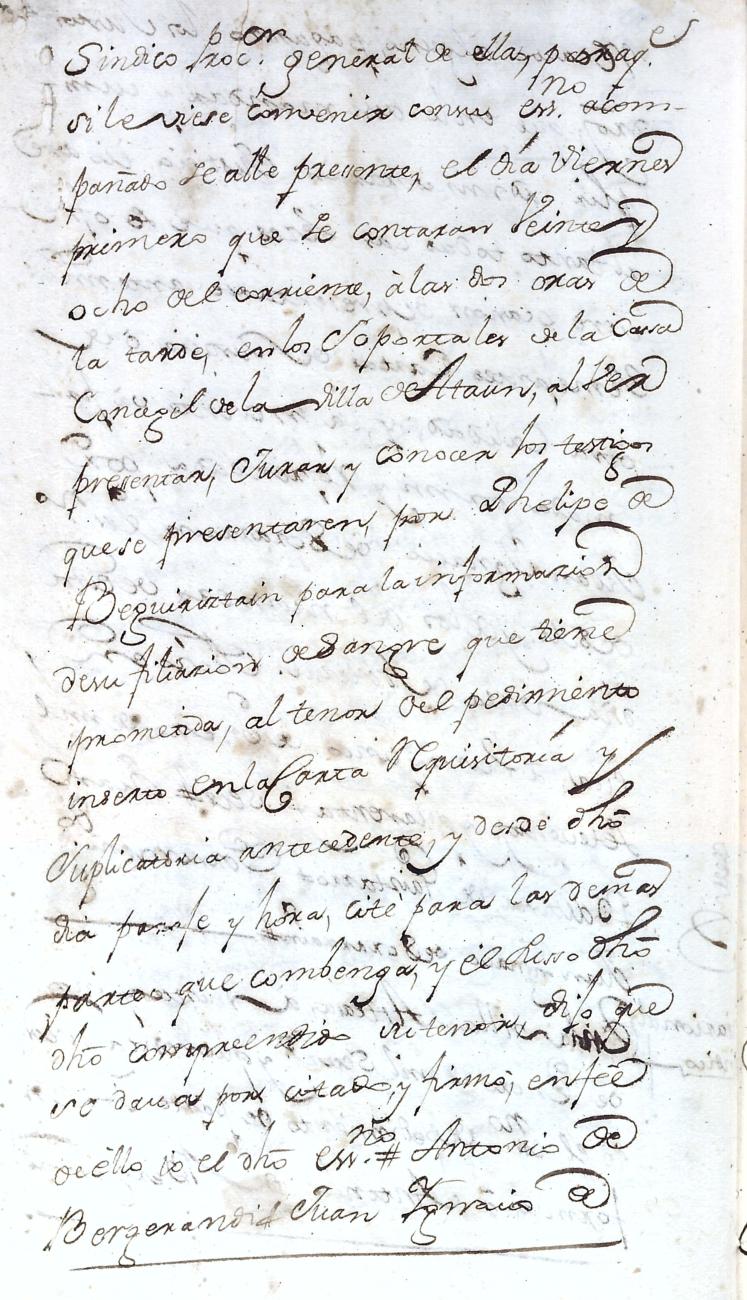 Sindico Proc.or general de ella, paraq.e
si le viese combenir con su ess.no acom-
pañado se alle pressente, el dia Viernes
primero que se contaran Veinte y
ocho del corriente, à las dos oras de
la tarde, en los Soportales de la Cassa
Concegil de la villa de Ataun, al Ver
pressentar, Jurar y conocer los testigos
que se presentaren, por Phelipe de
Beguiriztain para la informazion
de su filiazion de Sangre que tiene
prometida, al tenor del pedimiento
inserto en la Carta Requisitoria y
Suplicatoria antecedente, y desde dhõ
dia y hora, citè para las demas
partes que combenga, y el Susso dhõ
dhõ compreendido su tenor, dijo que
se daua por citado, y firmó, en feé
de ello io el dhõ ess.no # Antonio de
Bergerandi # Juan Ygnacio de